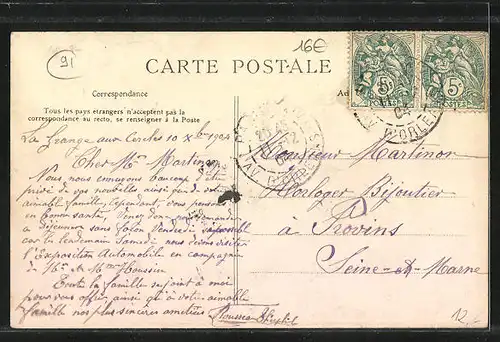 91
16€
CARTE POSTALE
Correspondance
Tous les pays étrangers n'acceptent pas la
correspondance au recto, se renseigner à la Poste
La Grange aux Cercles 10 Xbre 1904
Cher Mr Martinor
Nous nous ennuyons beaucoup d'être
privé de vos nouvelles ainsi que de votre
aimable famille, Cependant, vous pensons
en bonne santé, Venez donc
à Déjeuner sans façon Vendredi
car le lendemain Samedi nous devons visiter
l'Exposition Automobile en compagnie
de Mr et Mme Housseu
Toute la famille se joint à moi
pour vous offrir ainsi qu'à votre aimable
famille nos plus sincères amitiés
5c
POSTES
5c
POSTES
D'ORLEANS
Monsieur Martinor
Horloger Bijoutier
à Provins
Seine-et-Marne
12,-